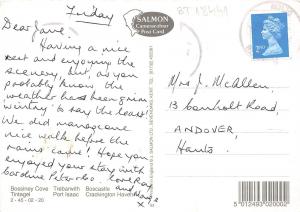 Friday
Dear Jane,
Having a nice
rest and enjoying the
scenery but, as you
probably know the
weather has been giving
'wintry' to say the least.
We did manage one
nice walk before the
rains came! Hope you
enjoyed your stay with
Love Roy
and
x
SALMON
Cameracolour
Post Card
BT 18441
2nd
Mrs J. McAllen,
13 Road,
ANDOVER,
Hants.
Bossiney Cove Trebarwith Boscastle
Tintagel Port Isaac Crackington Haven
2-45-02-20
5 012493 020002